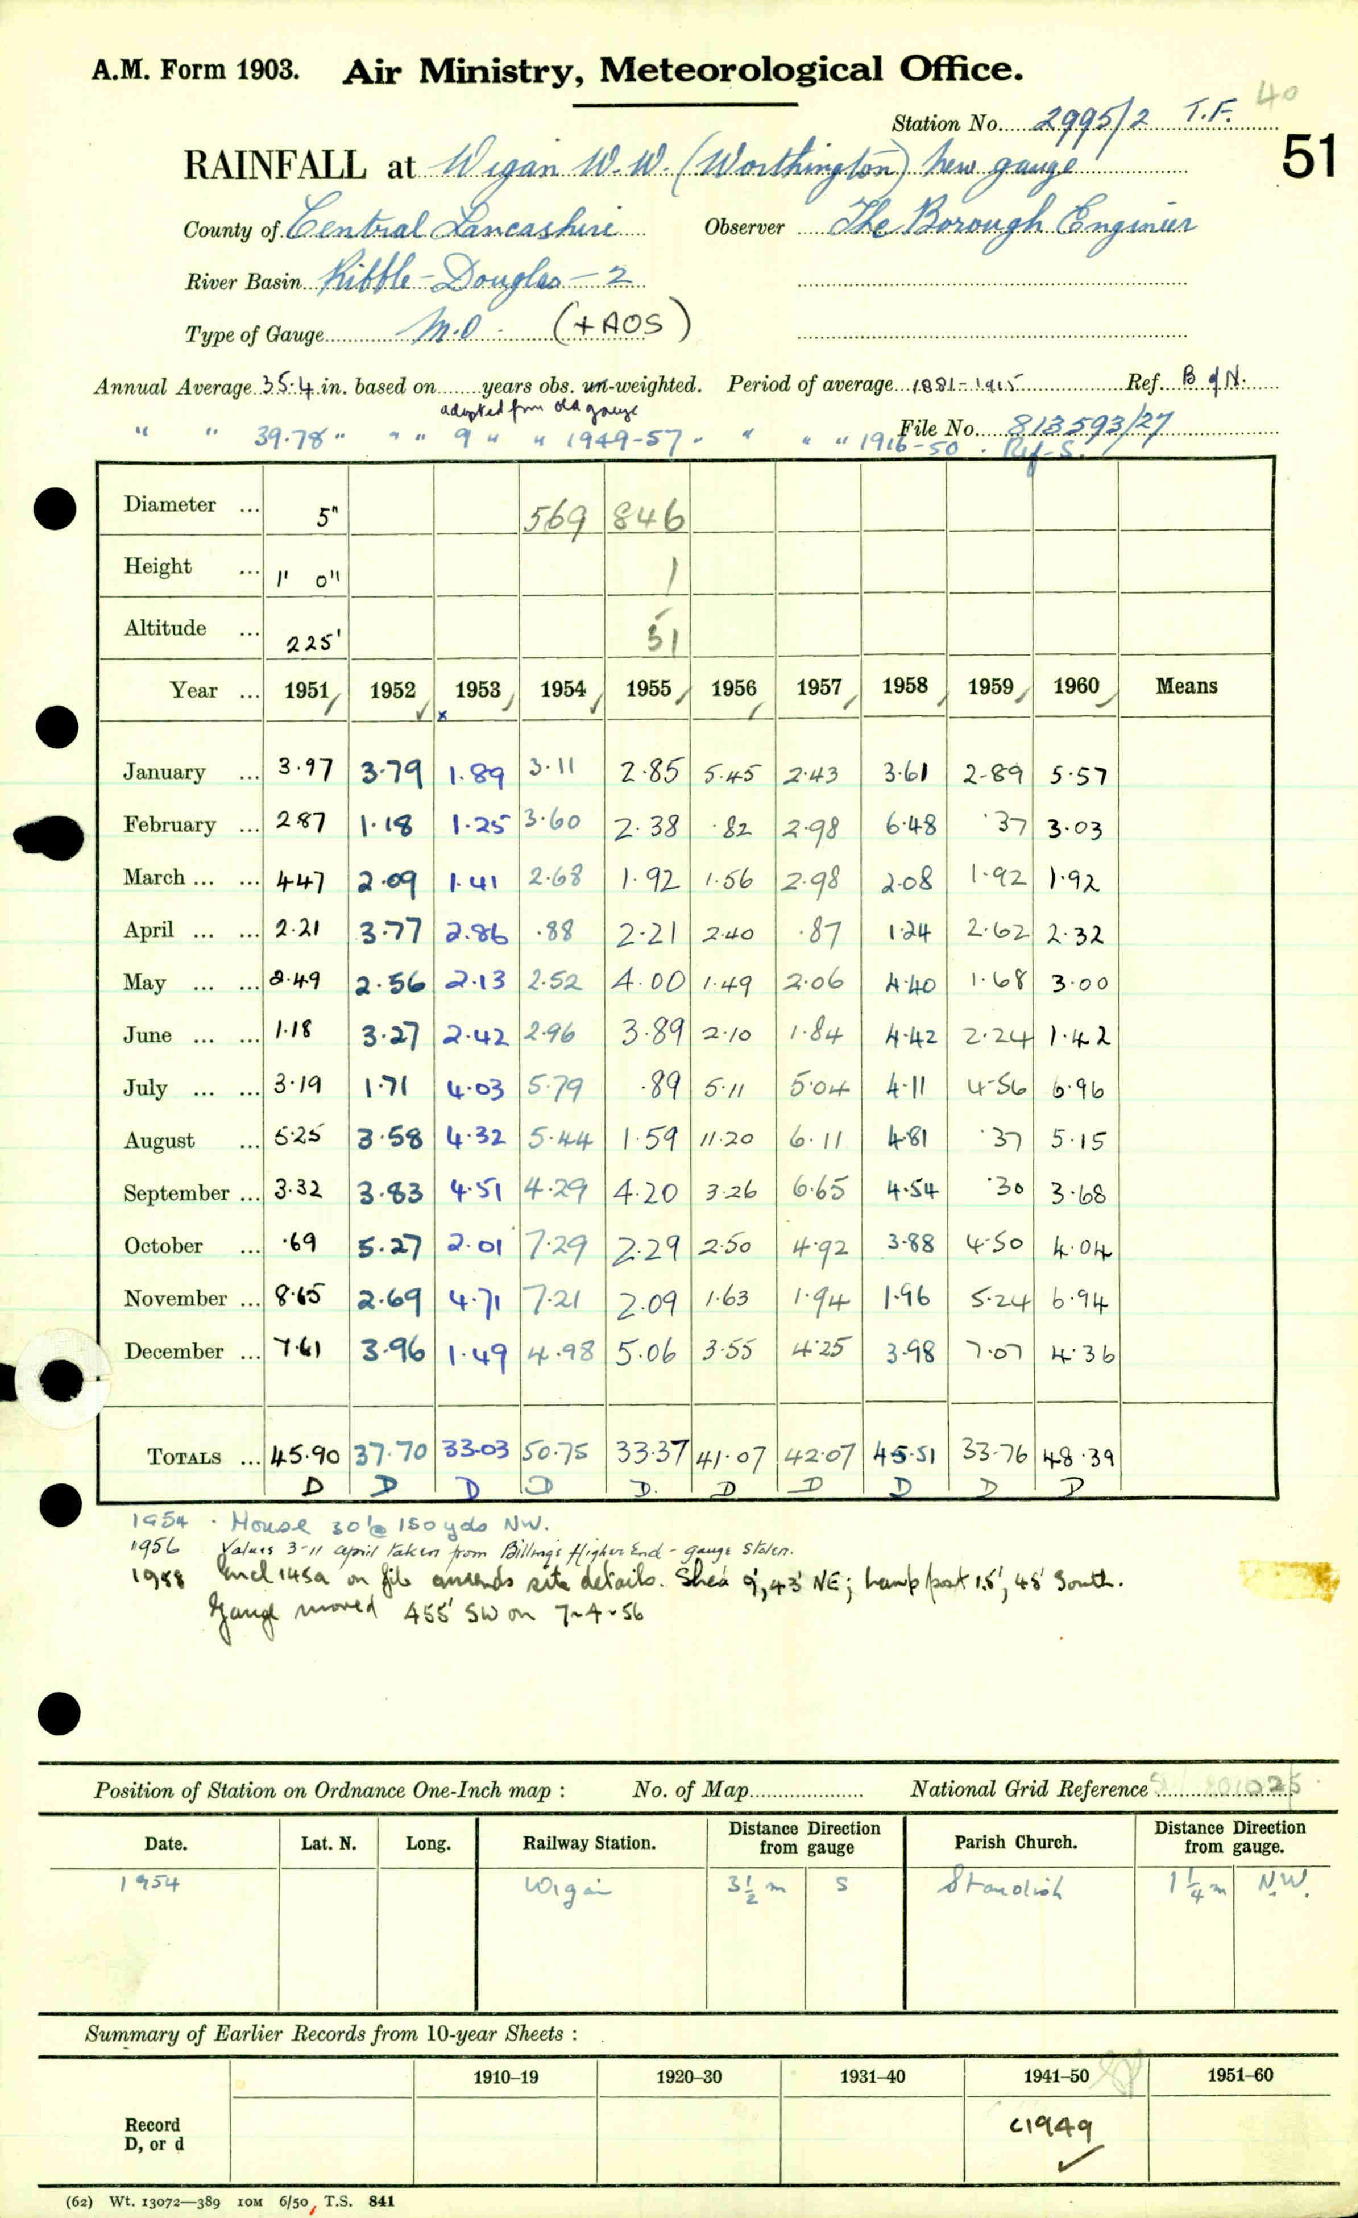 A.M. Form 1903. Air Ministry, Meteorological Office.
40
Station No. 2995/2 T.F.
51
RAINFALL at Wigan W.W. (Worthington) new gauge
County of Central Lancashire Observer The Borough Engineer
River Basin Ribble-Douglas-2
Type of Gauge M.O. (+AOS)
Annual Average 35.4 in. based on years obs. un-weighted. Period of average 1881-1915 Ref. B of N.
adopted from old gauge
" " 39.78 " " " 9 " " 1949-57 " " " " 1916-50. Ref-S.
File No. 813593/27
Diameter ... 5" 569 846
Height ... 1' 0" 1
Altitude ... 225' 51
Year ... 1951 1952 1953 1954 1955 1956 1957 1958 1959 1960 Means
x
January ... 3.97 3.79 1.89 3.11 2.85 5.45 2.43 3.61 2.89 5.57
February ... 2.87 1.18 1.25 3.60 2.38 .82 2.98 6.48 .37 3.03
March ... ... 4.47 2.09 1.41 2.68 1.92 1.56 2.98 2.08 1.92 1.92
April ... ... 2.21 3.77 2.86 .88 2.21 2.40 .87 1.24 2.62 2.32
May ... ... 2.49 2.56 2.13 2.52 4.00 1.49 2.06 4.40 1.68 3.00
June ... ... 1.18 3.27 2.42 2.96 3.89 2.10 1.84 4.42 2.24 1.42
July ... ... 3.19 1.71 4.03 5.79 .89 5.11 5.04 4.11 4.56 6.96
August ... 5.25 3.58 4.32 5.44 1.59 11.20 6.11 4.81 .37 5.15
September ... 3.32 3.83 4.51 4.29 4.20 3.26 6.65 4.54 .30 3.68
October ... .69 5.27 2.01 7.29 2.29 2.50 4.92 3.88 4.50 4.04
November ... 8.65 2.69 4.71 7.21 2.09 1.63 1.94 1.96 5.24 6.94
December ... 7.61 3.96 1.49 4.98 5.06 3.55 4.25 3.98 7.07 4.36
TOTALS ... 45.90 37.70 33.03 50.75 33.37 41.07 42.07 45.51 33.76 48.39
D D D D D. D D D D D
1954 . House 30' @ 150 yds NW.
1956 Values 3-11 April taken from Billinge Higher End - gauge stolen.
1958 Encl 145a on file amends site details. Shed 9', 43' NE; Lamp post 15', 45' South.
Gauge moved 455' SW on 7-4-56
Position of Station on Ordnance One-Inch map : No. of Map National Grid Reference
Date. Lat. N. Long. Railway Station. Distance Direction from gauge Parish Church. Distance Direction from gauge.
1954 Wigan 3½ m S Standish 1¼ m N.W.
Summary of Earlier Records from 10-year Sheets :
1910–19 1920–30 1931–40 1941–50 1951–60
Record
D, or d
c1949
(62) Wt. 13072—389 10M 6/50, T.S. 841